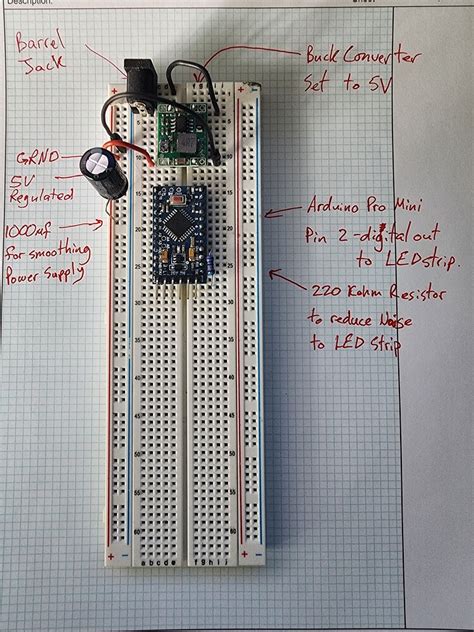 Description:
Barrel
Jack
Buck Converter
Set to 5V
GRND
5V
Regulated
1000uf
for smoothing
Power Supply
Arduino Pro Mini
Pin 2 - digital out
to LED strip.
220 Kohm Resistor
to reduce Noise
to LED Strip
a b c d e
f g h i j